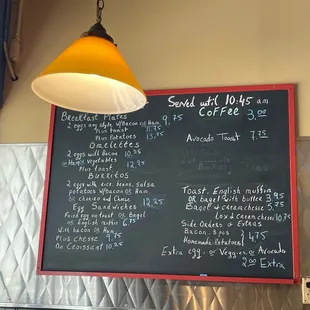 Served until 10:45 am
Coffee 3.00
Breakfast Plates
2 eggs any style w/Bacon or Ham 9.75
Plus toast 11.75
Plus Potatoes 13.75
Omelettes
2 eggs with Bacon 10.25
or Ham & Vegetables 12.25
Plus toast
Burritos
2 eggs with rice, beans, salsa
potatoes w/ Bacon or Ham
or chorizo and Chesse 12.25
Egg Sandwiches
Fried egg on toast or Bagel
or English muffin 6.75
With bacon or Ham
Plus Chesse 9.75
On Croissant 10.25
Avocado Toast 7.75
Toast, English muffin
or bagel with butter 3.95
Bagel & cream cheese 5.75
Lox & cream cheese 10.75
Side Orders & Extras
Bacon, 3 pcs
Homemade Potatoes 4.75
Extra egg or Veggies or Avocado
2.00 Extra